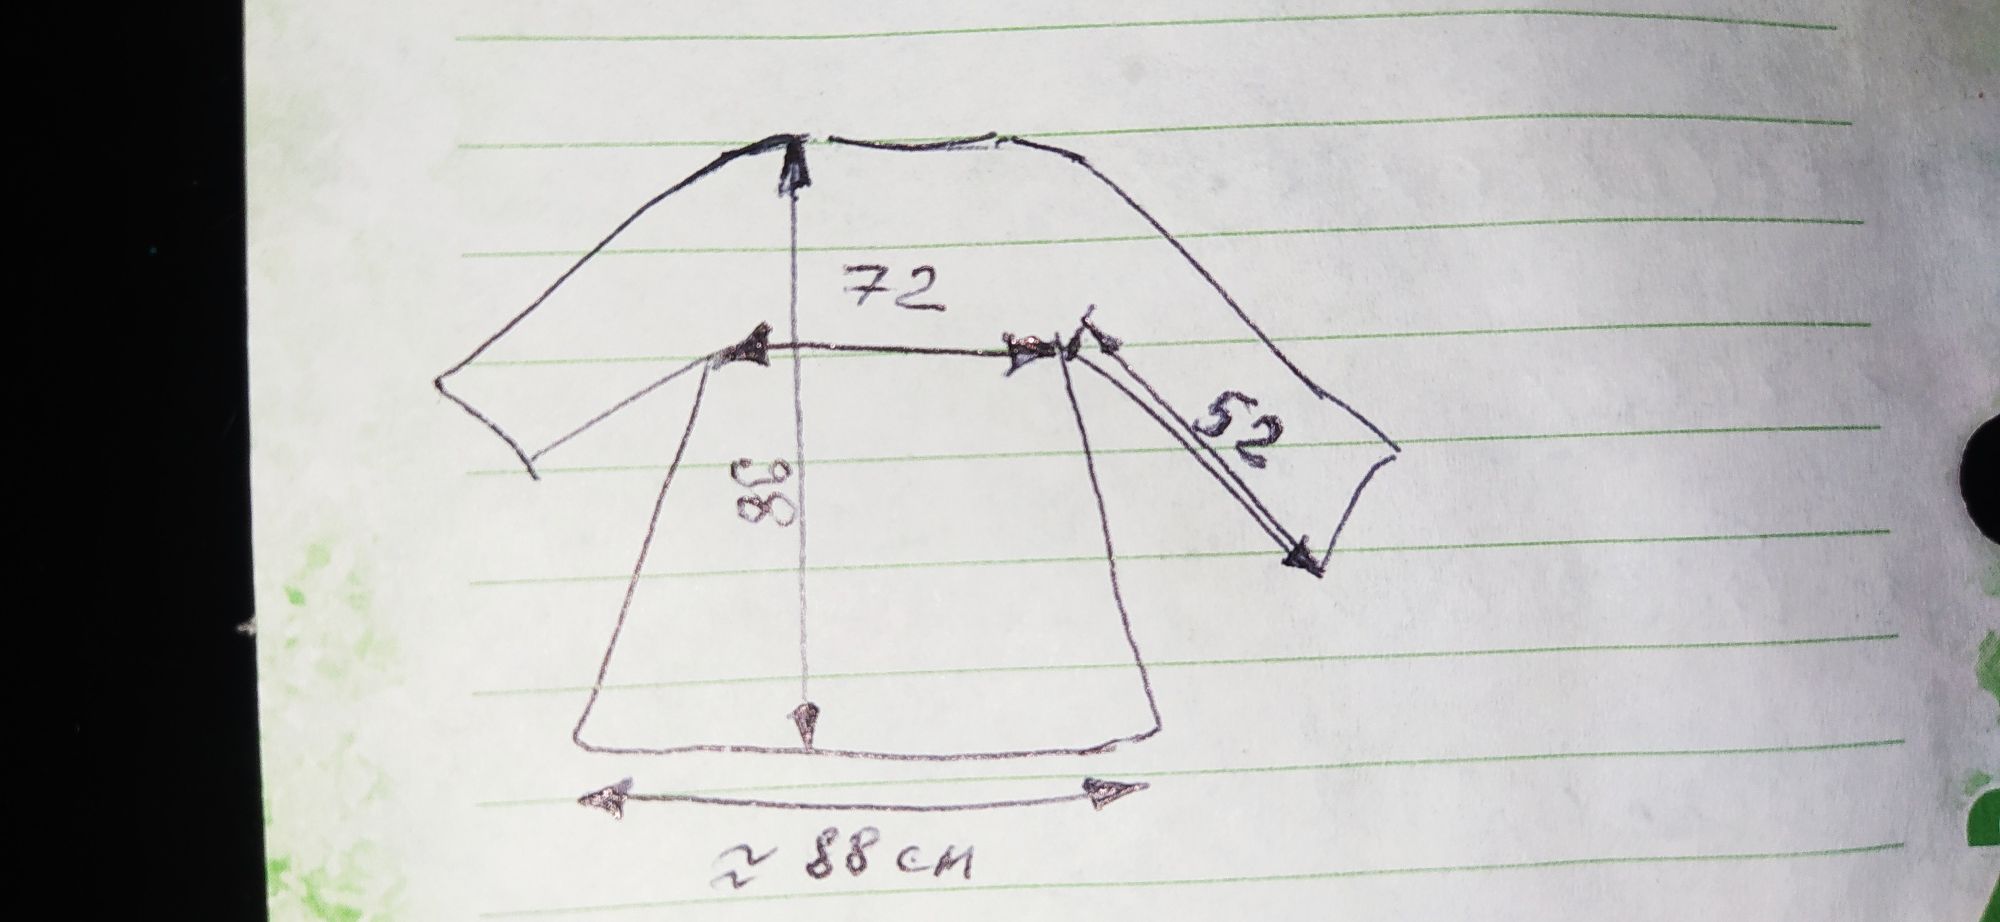 72
52
86
≈ 88 см